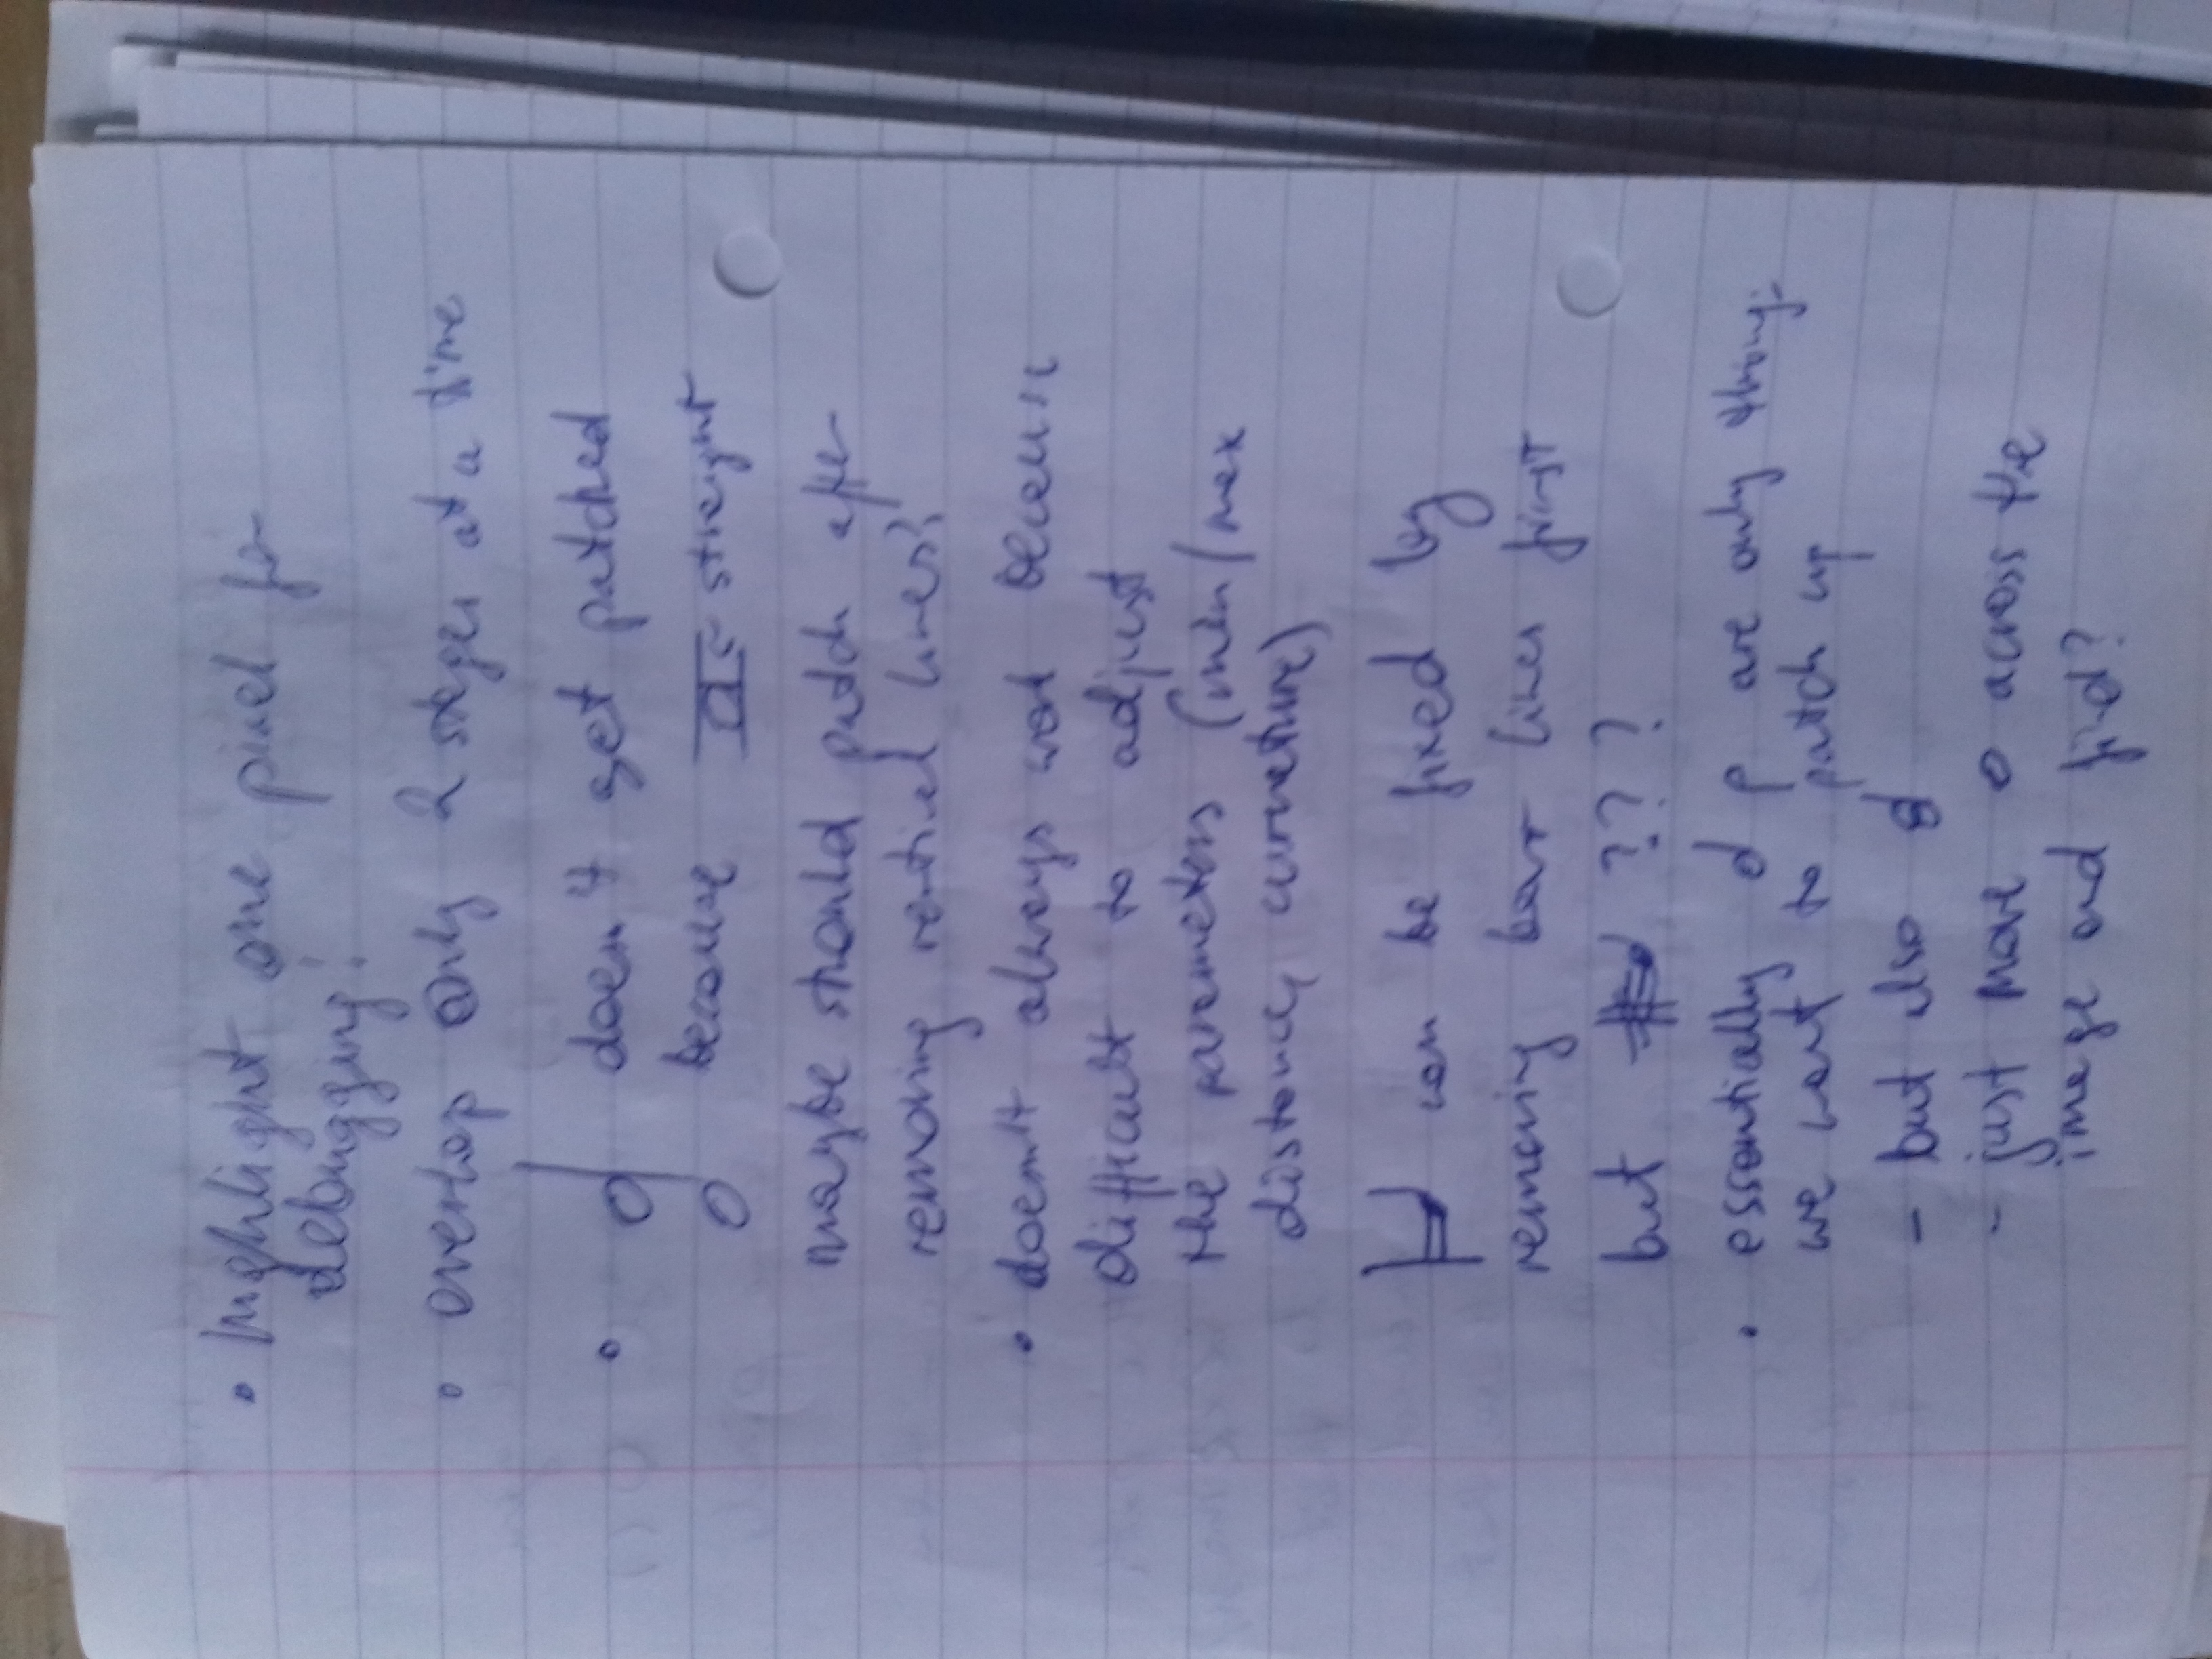 • highlight one pixel for
debugging!
• overlap only 2 stages at a time
• doesn't get patched
because is straight
maybe should patch after
removing vertical lines?
• doesn't always work because
difficult to adjust
the parameters (min/max
distance, curvature)
can be fixed by
removing bar lines first
but ???
• essentially d p are only things
we want to patch up
- but also
- just move o across the
image and find?